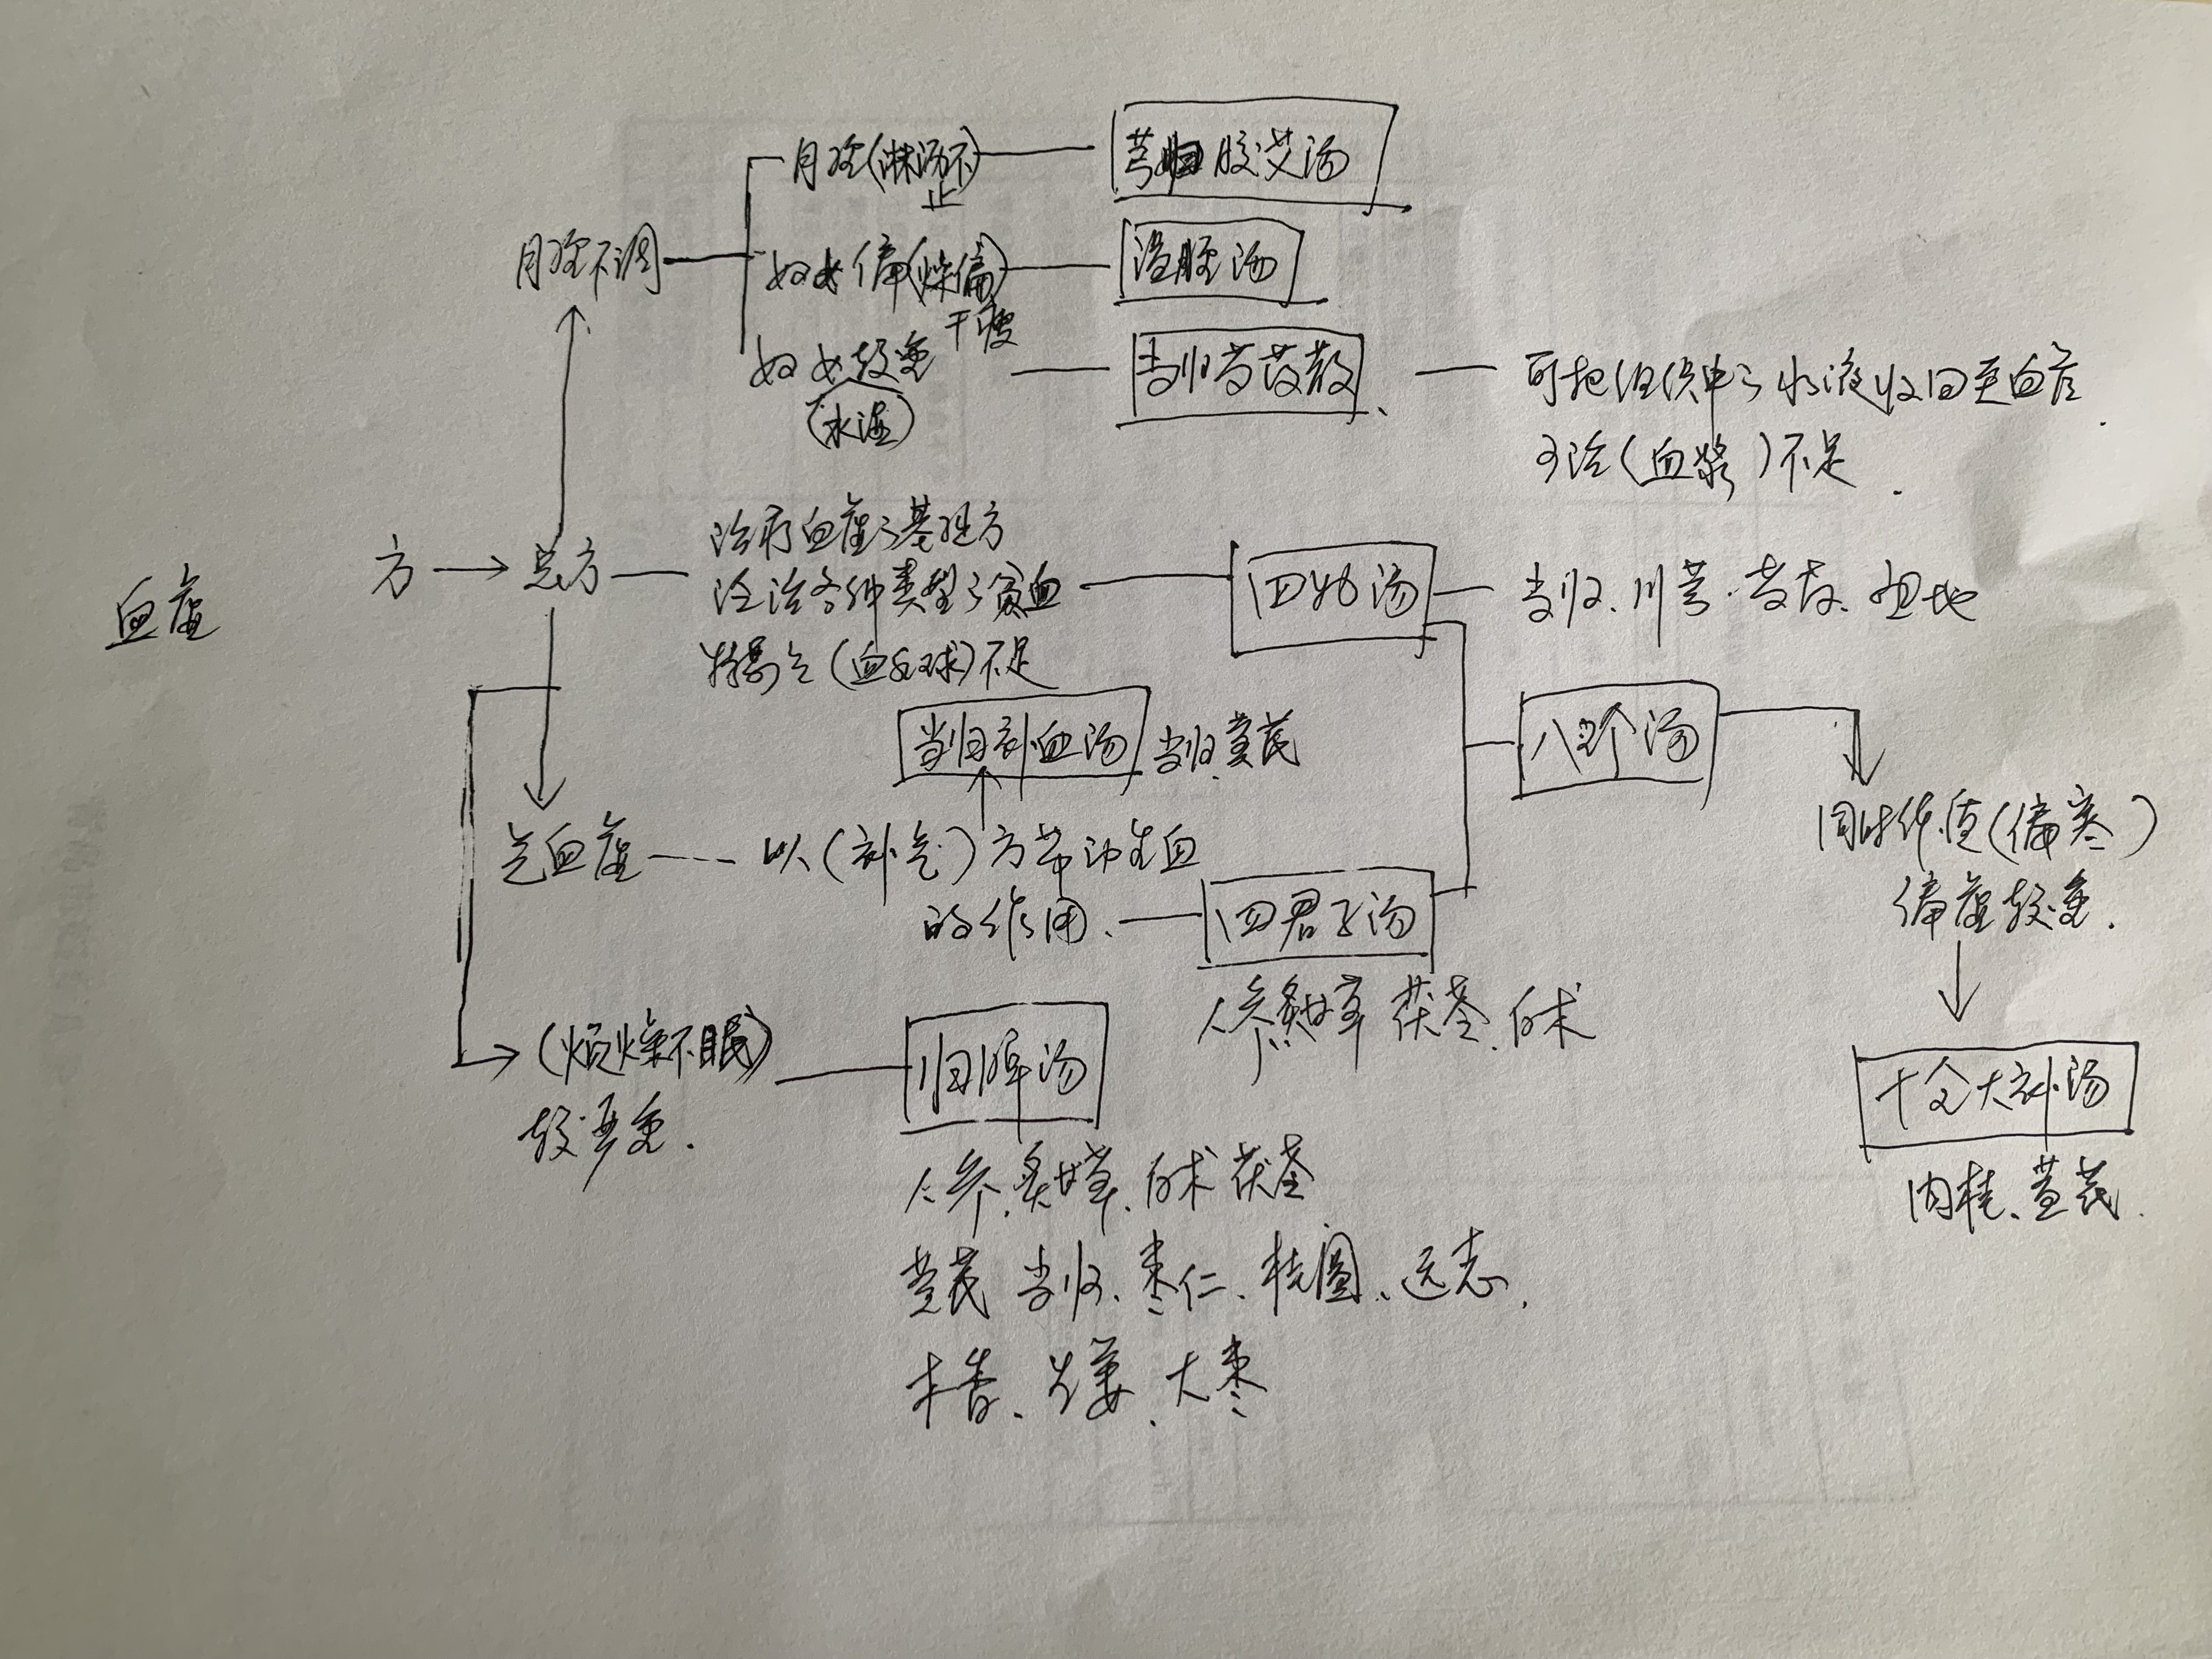 月经(淋漓不
止
芎归胶艾汤
月经不调
妇女偏(燥偏)
干瘦
温经汤
妇女较重
(水湿)
当归芍药散、
可把组织中之水液收回至血管.
可治(血浆)不足.
血虚
方
总方
治疗血虚之基础方
治各种类型之贫血
特别是(血红球)不足
四物汤
当归、川芎、芍药、地
当归补血汤
当归、黄芪
八珍汤
气血虚
以(补气)方带动生血
的作用、
四君子汤
人参、炙甘草 茯苓、白术
同时体质(偏寒)
偏虚较重.
十全大补汤
肉桂、黄芪.
(烦燥不眠)
较严重.
归脾汤
人参、炙甘草、白术 茯苓
黄芪 当归、枣仁、桂圆、远志、
木香、生姜、大枣